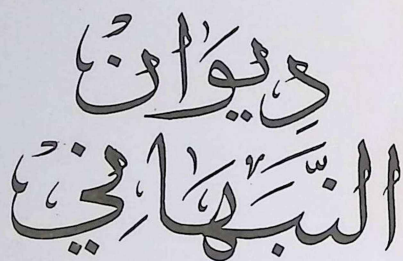 دِيوَانْ
النَّبَهَانِي